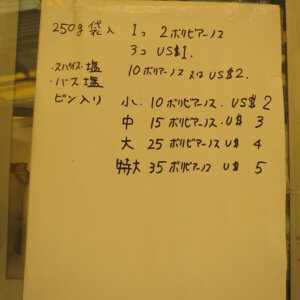 250g 袋入 1コ 2ボリビアーノス
3コ US$1.
・スパイス塩 10ボリビアーノス 又は US$2.
・バス塩
ビン入り 小. 10ボリビアーノス. US$ 2
中 15ボリビアーノス. U$ 3
大 25ボリビアーノス U$ 4
特大 35ボリビアーノス U$ 5